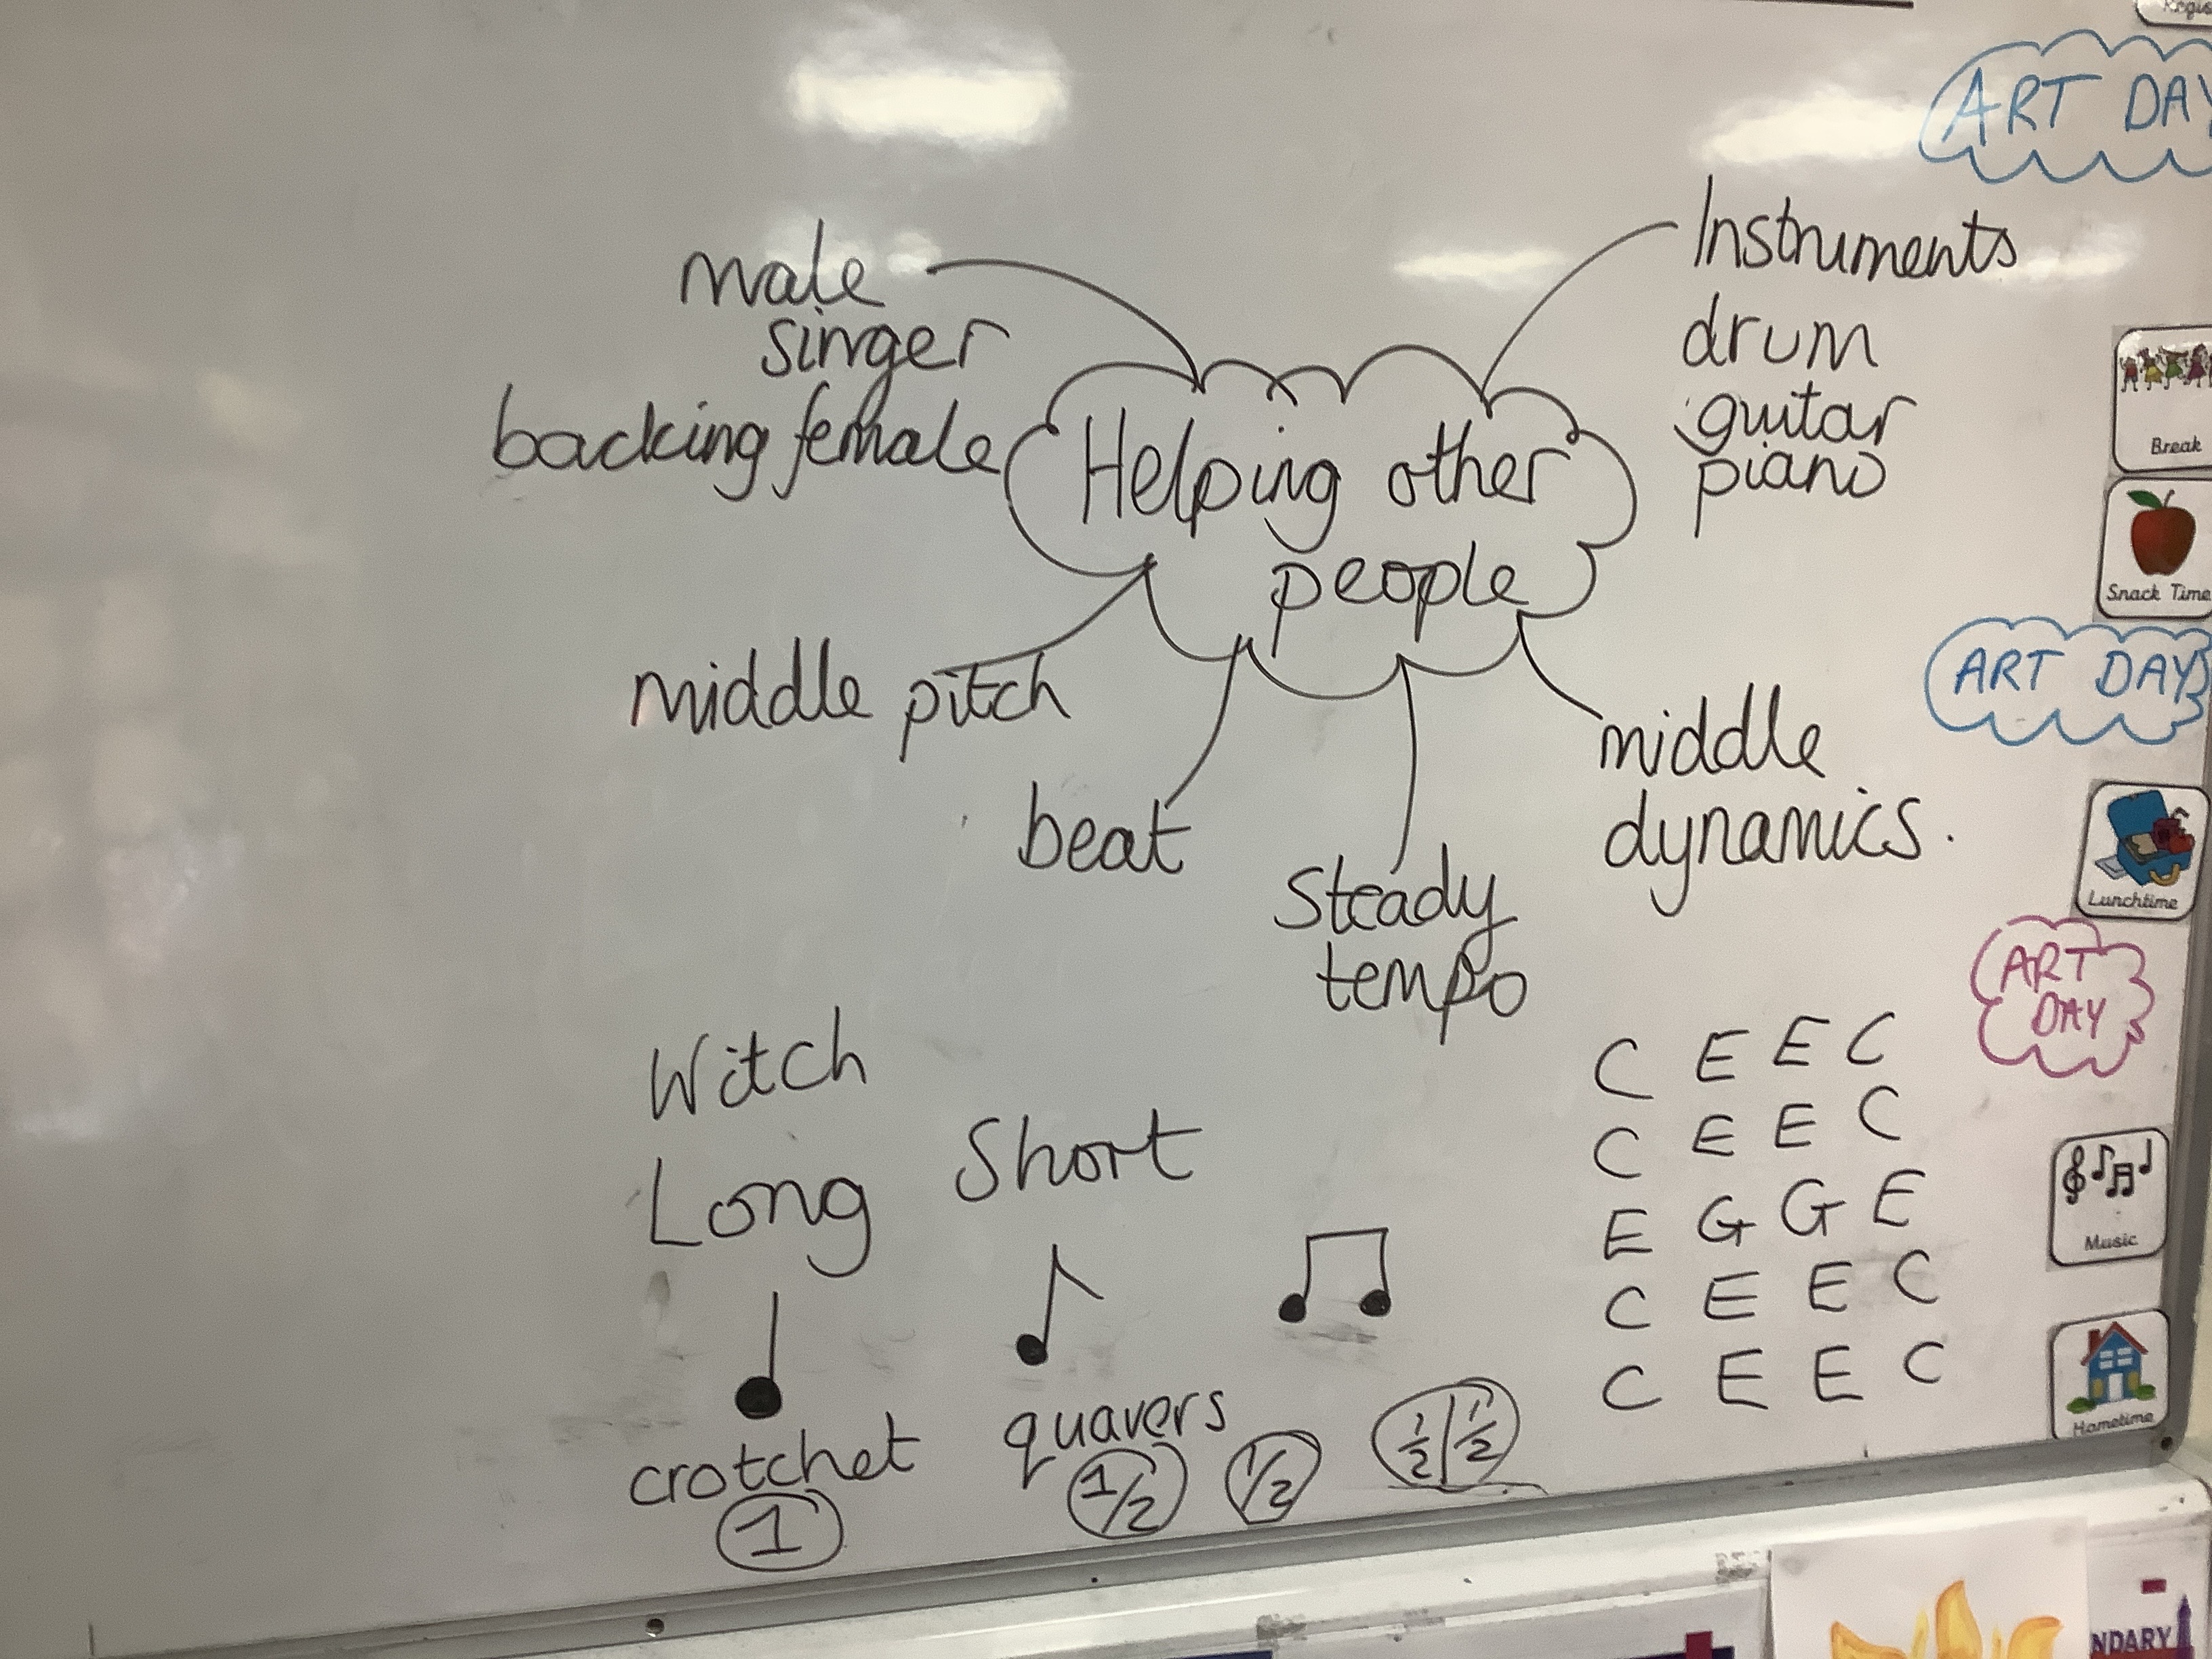 ART DAY
male
singer
backing female
Helping other
people
Instruments
drum
guitar
piano
middle pitch
beat
Steady
tempo
middle
dynamics.
Witch
Long Short
crotchet
1
quavers
1/2 1/2 1/2 | 1/2
C E E C
C E E C
E G G E
C E E C
C E E C
Break
Snack Time
ART DAY
Lunchtime
ART
DAY
Music
Hometime